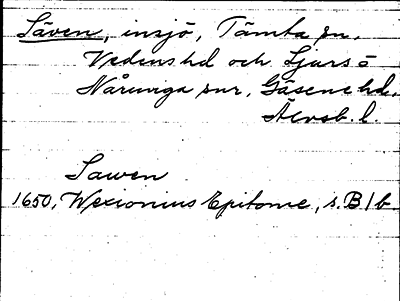 Säven, insjö, Tämta sn,
Vedens hd och Ljurs o
Nårunga snr, Gäsene hd,
Älvsb. l.
Sawen
1650, Wexionius Epitome, s. B1b